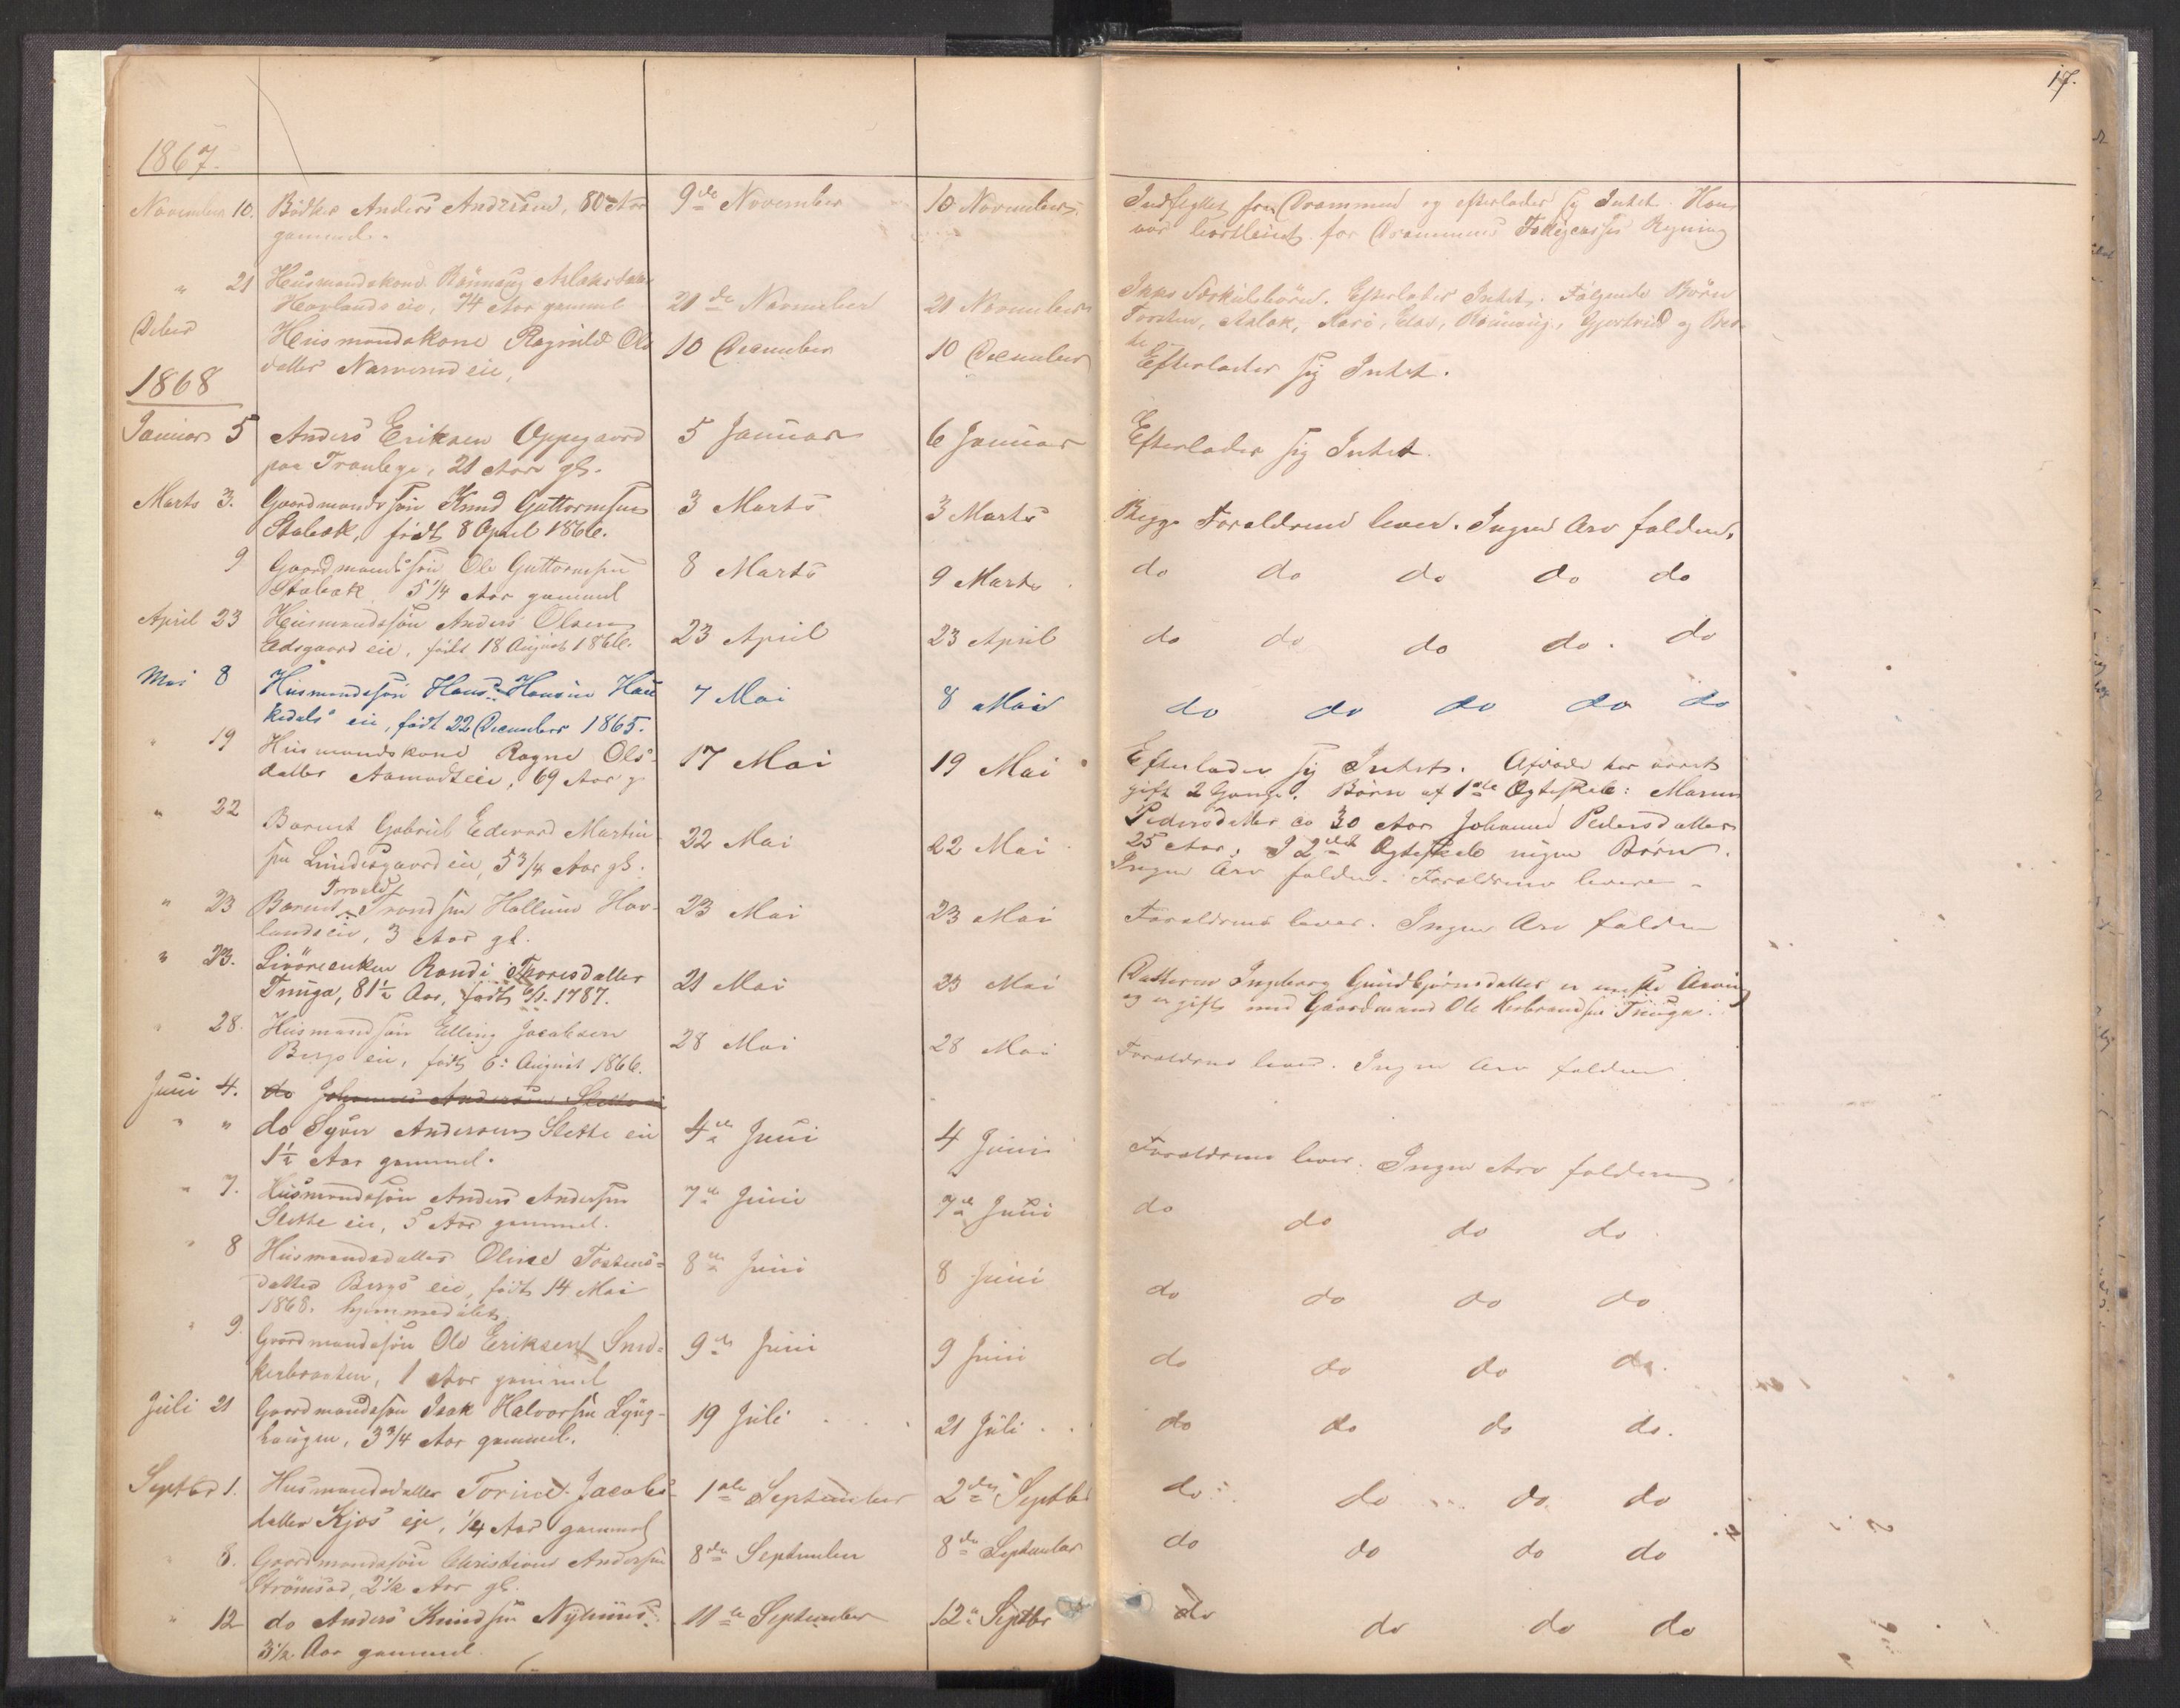 17.
1867.
November 10. Bödker Anders Andersen, 80 Aar 9de November 10 November. Indflyttet fra Drammen og efterlader sig Intet. Han
gammel. var bortleiet for Drammens Fattigcasses Regning
" 21 Husmandskone Rönnaug Aslaksdatter Ikke Særkulsbörn. Efterlader Intet. Fölgende Börn
Havlands eie, 74 Aar gammel 21de November 21 November Torsten, Aslak, Kari, Rönnaug, Gjertrud og
Debr Husmandskone Ragnild Ols 10 December 10 December
datter eie, Efterlader sig Intet.
1868
Januar 5 Anders Eriksen Oppegaard 5 Januar 6 Januar Efterlader sig Intet.
paa Tranlege, 21 Aar gl.
Marts 3. Gaardmandssön Knud Guttormsen 3 Marts 3 Marts Begge Forældrene lever. Ingen Arv falden.
Stabæk, födt 8 April 1866.
9 Gaardmandssön Ole Guttormsen 8 Marts 9 Marts do do do do do
Stabæk 5 1/4 Aar gammel
April 23 Husmandssön Anders Olsen 23 April 23 April do do do do. do
Edsgaard eie, födt 18 August 1866.
Mai 8 Husmandssön Hans Hansen Hau 7 Mai 8 Mai do do do do do
kedals eie, födt 22 December 1865.
" 19 Husmandskone Ragne Ols- 17 Mai 19 Mai Efterlader sig Intet. Afdøde har været
datter Aamodts eie, 69 Aar g gift 2 Gange. Börn af 1ste Ægteskab: Maren
" 22 Pedersdatter ca 30 Aar Johanne Pedersdatter
Barnet Gabriel Edvard Martin- 22 Mai 22 Mai 25 Aar, I 2det Ægteskab ingen Börn.
sen Lundesgaard eie, 5 3/4 Aar gl. Ingen Arv falden. Forældrene levere -
" 23 Barnet Trond sen Hallum Hav- 23 Mai 23 Mai Forældrene lever. Ingen Arv falden
lands eie, 3 Aar gl.
" 23. Livöreenken Randi Thoresdatter 21 Mai 23 Mai Datteren Ingeborg Gundbjörnsdatter er eneste Arving
Tunga, 81½ Aar, födt 6/1. 1787. og er gift med Gaardmand Ole Herbrandsen Tunga.
" 28. Husmandssön Elling Jacobsen 28 Mai 28 Mai Forældrene lever. Ingen Arv falden.
Bergs eie, födt 6. August 1866.
Juni 4. do Johannes Andersen Slette eie
" " do Syver Andersen Slette eie 4de Juni 4 Juni Forældrene lever. Ingen Arv falden.
1½ Aar gammel.
" 7. Husmandssön Anders Andersen 7de Juni 7de Juni do do do do.
Slette eie, 5 Aar gammel.
" 8 Husmandsdatter Oline Torstens- 8de Juni 8 Juni do do do do.
datter Bergs eie, födt 14 Mai
1868. hjemmedöbt
" 9. Gaardmandssön Ole Eriksen Snd- 9de Juni 9 Juni do do do do.
kerbraaten, 1 Aar gammel
Juli 21 Gaardmandssön Isak Halvorsen Lyng- 19 Juli 21 Juli do do do do.
haugen, 3 3/4 Aar gammel.
Septbr 1. Husmandsdatter Torine Jacobs- 1ste September 2den Septbr do do do do
datter Kjos eje, 1/4 Aar gammel
" 8. Gaardmandssön Christian Andersen 8de September 8de September do do do do
Strömsod, 2½ Aar gl.
" 12 do Anders Knudsen Nyhuus 11te September 12te Septbr do do do do
3½ Aar gammel.